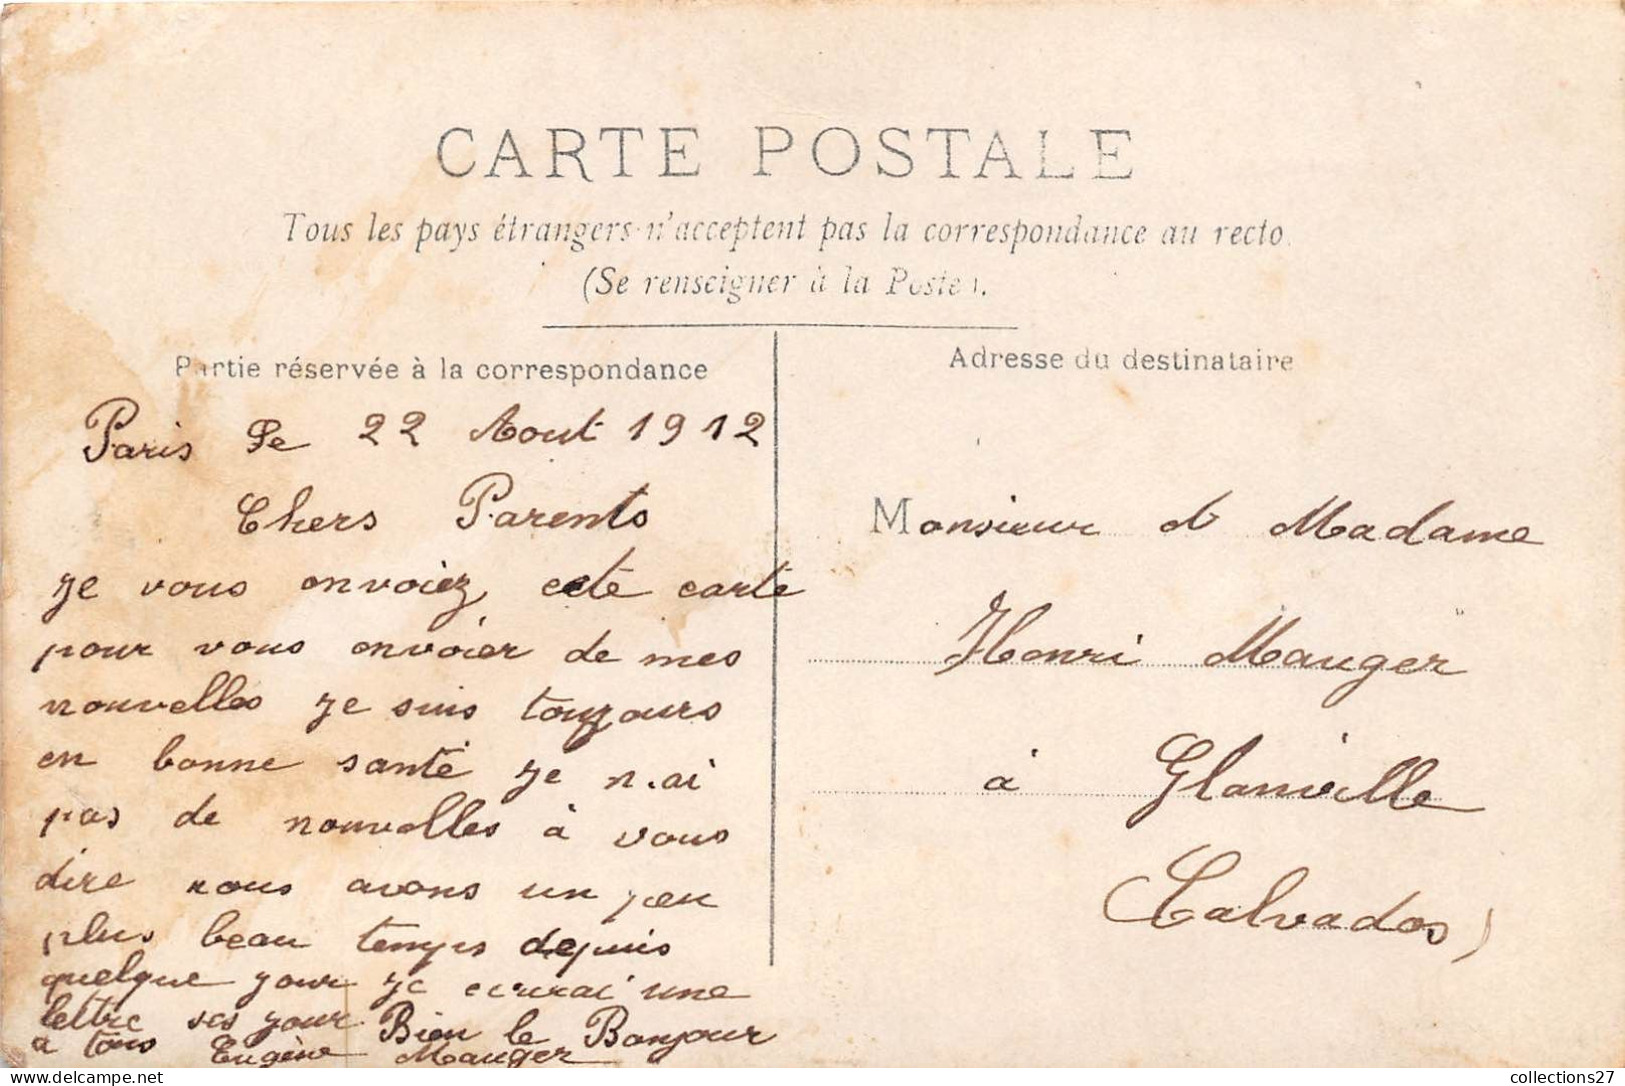 CARTE POSTALE
Tous les pays étrangers n'acceptent pas la correspondance au recto.
(Se renseigner à la Poste).
Partie réservée à la correspondance
Paris le 22 Aout 1912
Chers Parents
je vous envoiez cete carte
pour vous envoier de mes
nouvelles je suis toujours
en bonne santé je n.ai
pas de nouvelles à vous
dire nous avons un peu
plus beau temps depuis
quelque jour je ecrirai une
lettre ses jour Bien le Bonjour
a tous Eugène Mauger
Adresse du destinataire
Monsieur et Madame
Henri Mauger
à Glanville
Calvados)
collections27